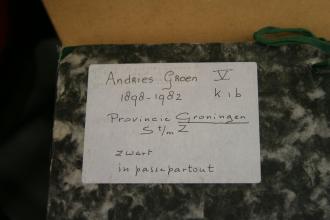 Andries Groen V
1898-1982 k i b
Provincie Groningen
S t/m Z
zwart
in passepartout